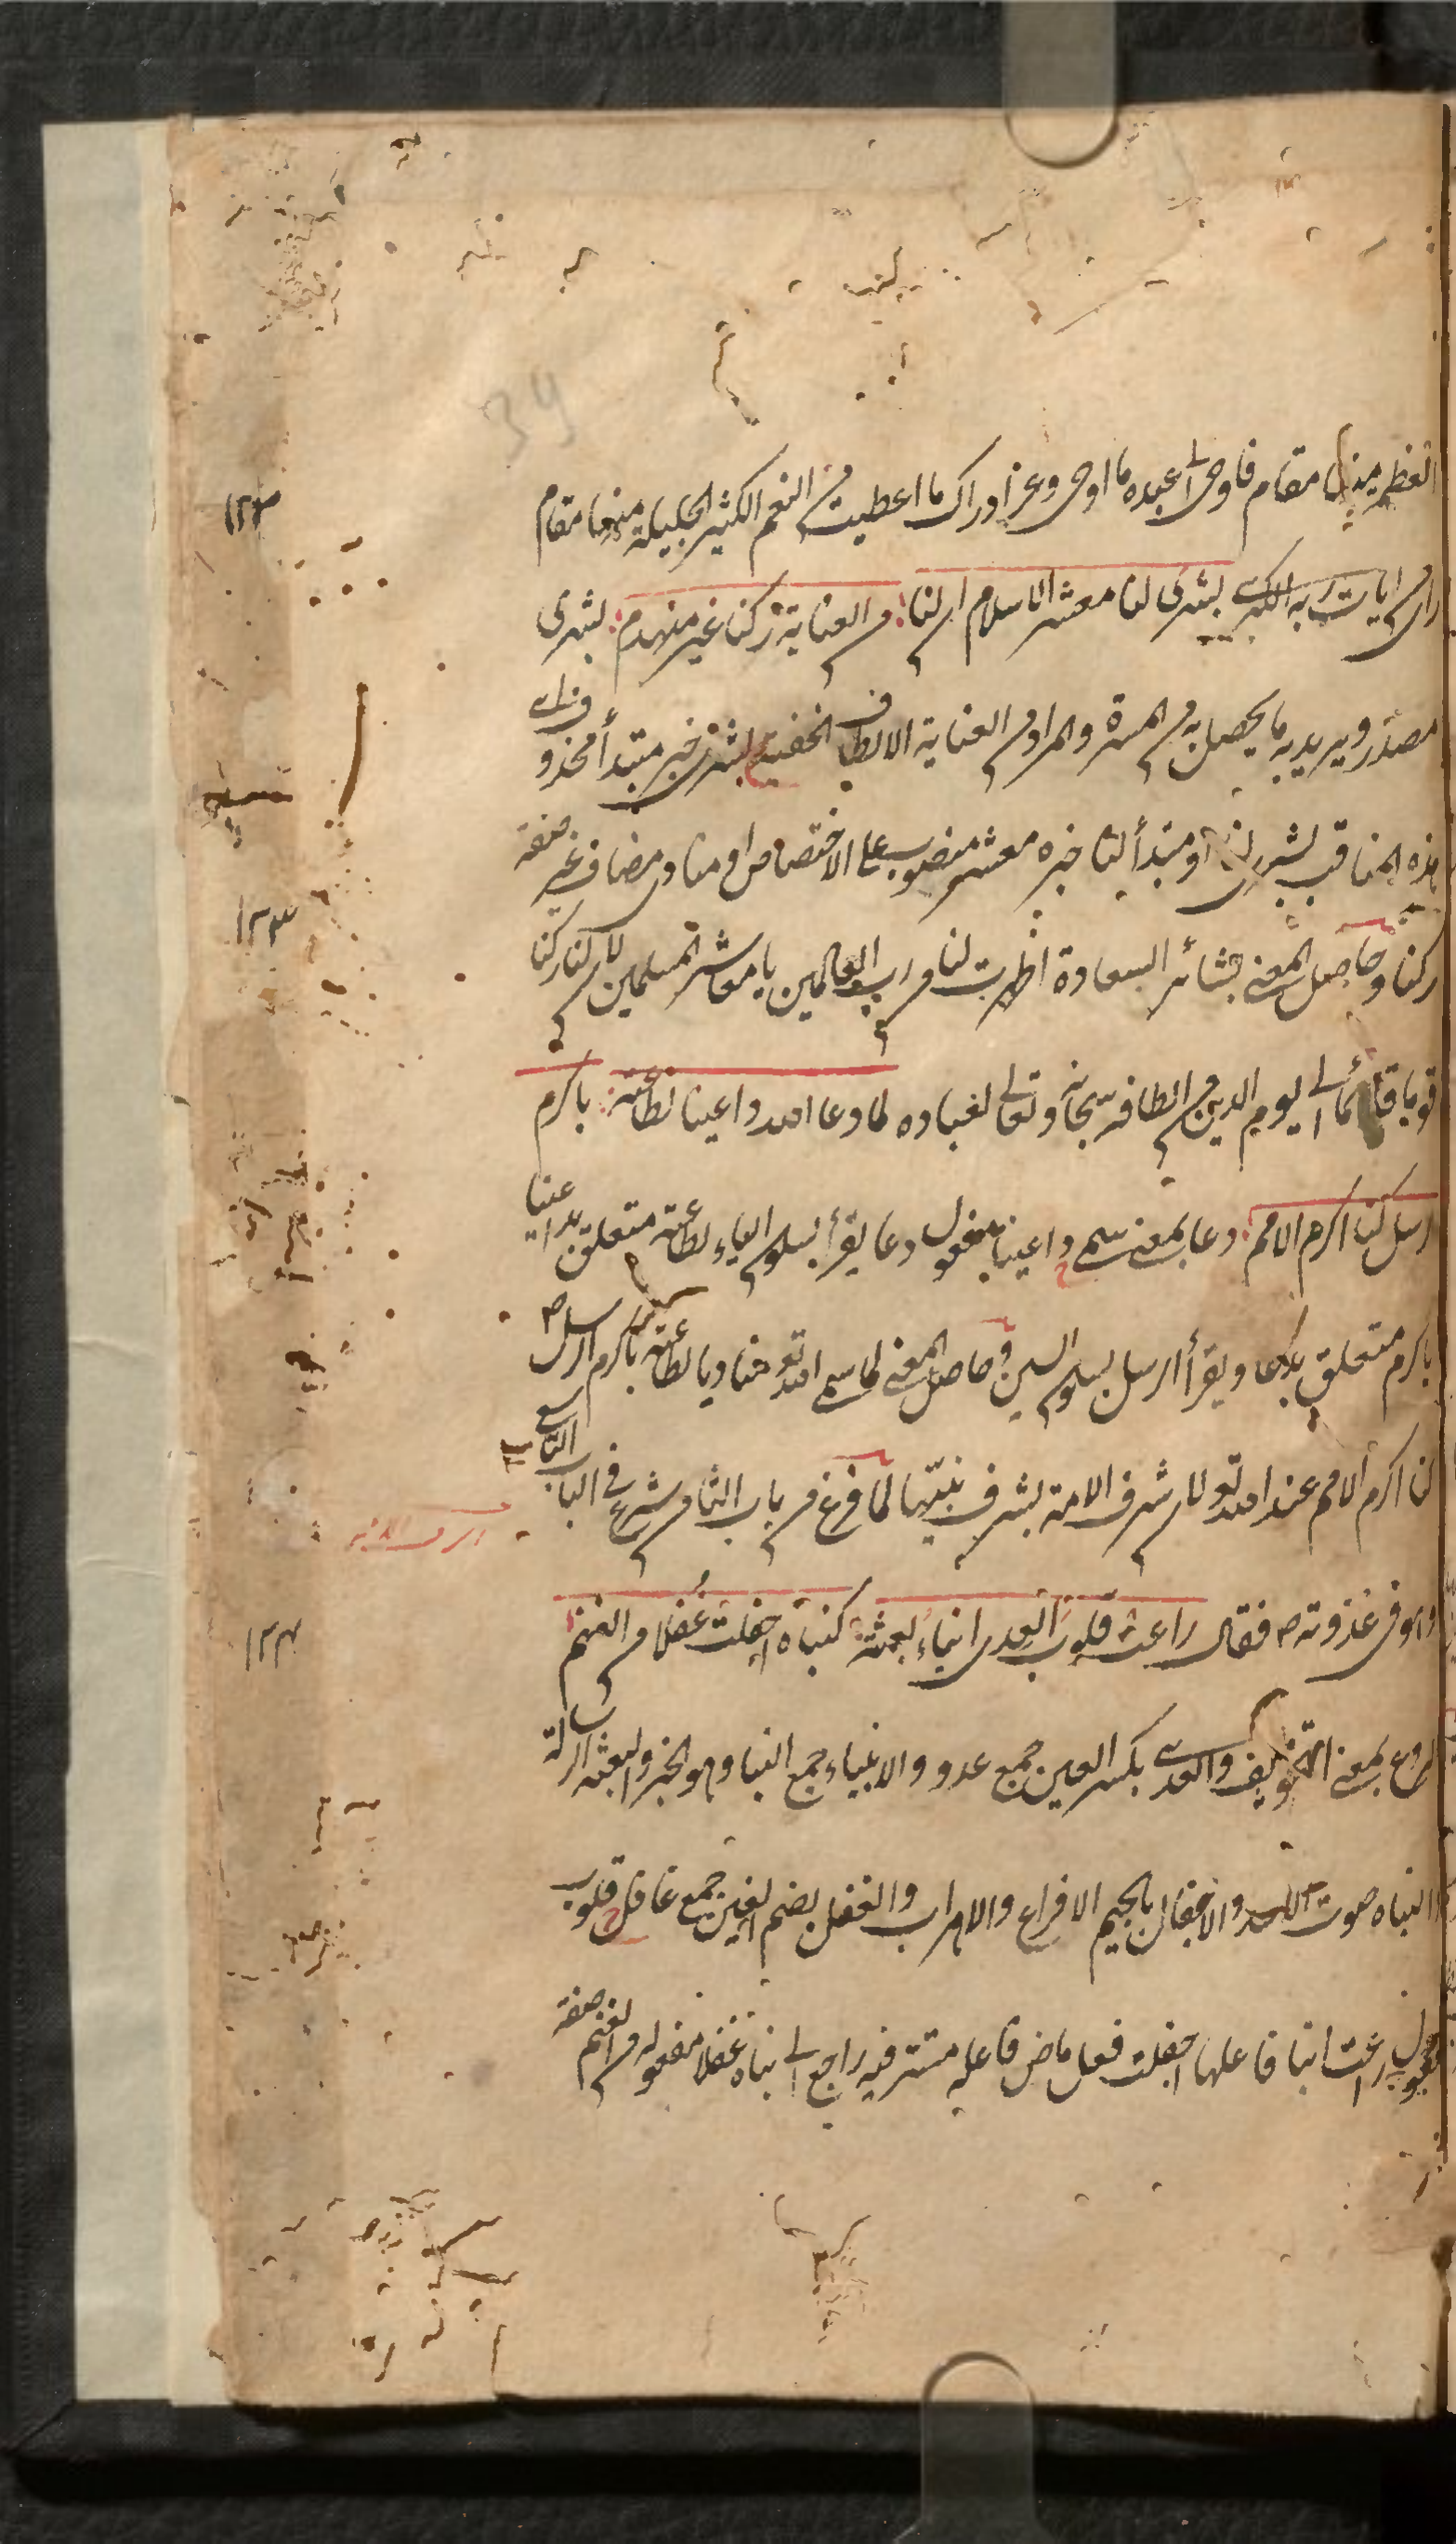 العظيم منها مقام فاوحى الى عبده ما اوحى وعز ادراك ما اعطيت من النعم الكثير الجليلة منها مقام
راى من ايات ربه الكبرى بشرى لنا معشر الاسلام ان لنا من العناية ركنا غير منهدم بشرى
مصدر ويريد به ما يحصل به من المسرة والمراد من العناية الالطاف الخفية بشرى خبر مبتدأ محذوف اى
هذه المناقب بشرى لنا او مبتدأ لنا خبره معشر منصوب على الاختصاص او منادى مضاف غير صفة
ركنا وحاصل المعنى بشائر السعادة اظهرت لنا من رب العالمين يا معاشر المسلمين لان لنا ركنا
قويا قائما الى يوم الدين من الطافه سبحانه وتعالى لعباده لما دعا الله داعينا لطاعته باكرم
الرسل كنا اكرم الامم دعا بمعنى سمى داعينا مفعول دعا يقرأ بسكون الياء لطاعته متعلق بداعينا
باكرم متعلق بدعا ويقرأ الرسل بسكون السين وحاصل المعنى لما سمى الله تعو منادينا لطاعته باكرم الرسل ص
كنا اكرم الامم عند الله تعو لان شرف الامة بشرف نبيها لما فرغ من باب الثامن شرع فى الباب التاسع
وهو فى غزوته ص فقال راعت قلوب العدى انباء بعثته كنبأة اجفلت غفلا من الغنم
الروع بمعنى التخويف والعدى بكسر العين جمع عدو والانبياء جمع النبا وهو الخبر والبعثة الرسالة
النباه صوت الاسد والاجفال بالجيم الافزاع والاهراب والغفل بضم الغين جمع غافل قلوب
مفعول راعت انبا فاعلها اجفلت فعل ماض فاعله مستتر فيه راجع الى نباه غفلا مفعوله من الغنم صفة
١٢٢
١٢٣
١٢٤
39